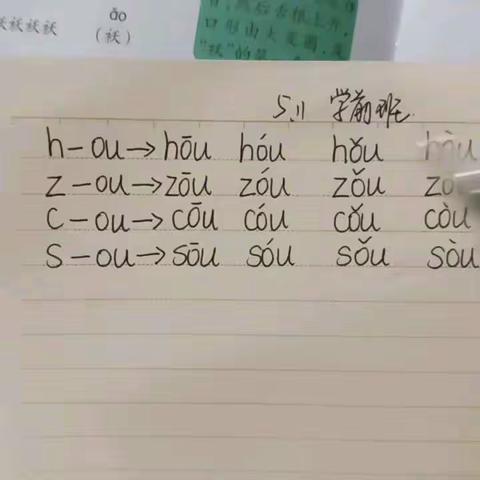 ǎo
袄袄袄袄
(袄)
口形由大变圆,
5.11 学前班
h-ou→hōu hóu hǒu hòu
z-ou→zōu zóu zǒu
c-ou→cōu cóu cǒu còu
s-ou→sōu sóu sǒu sòu